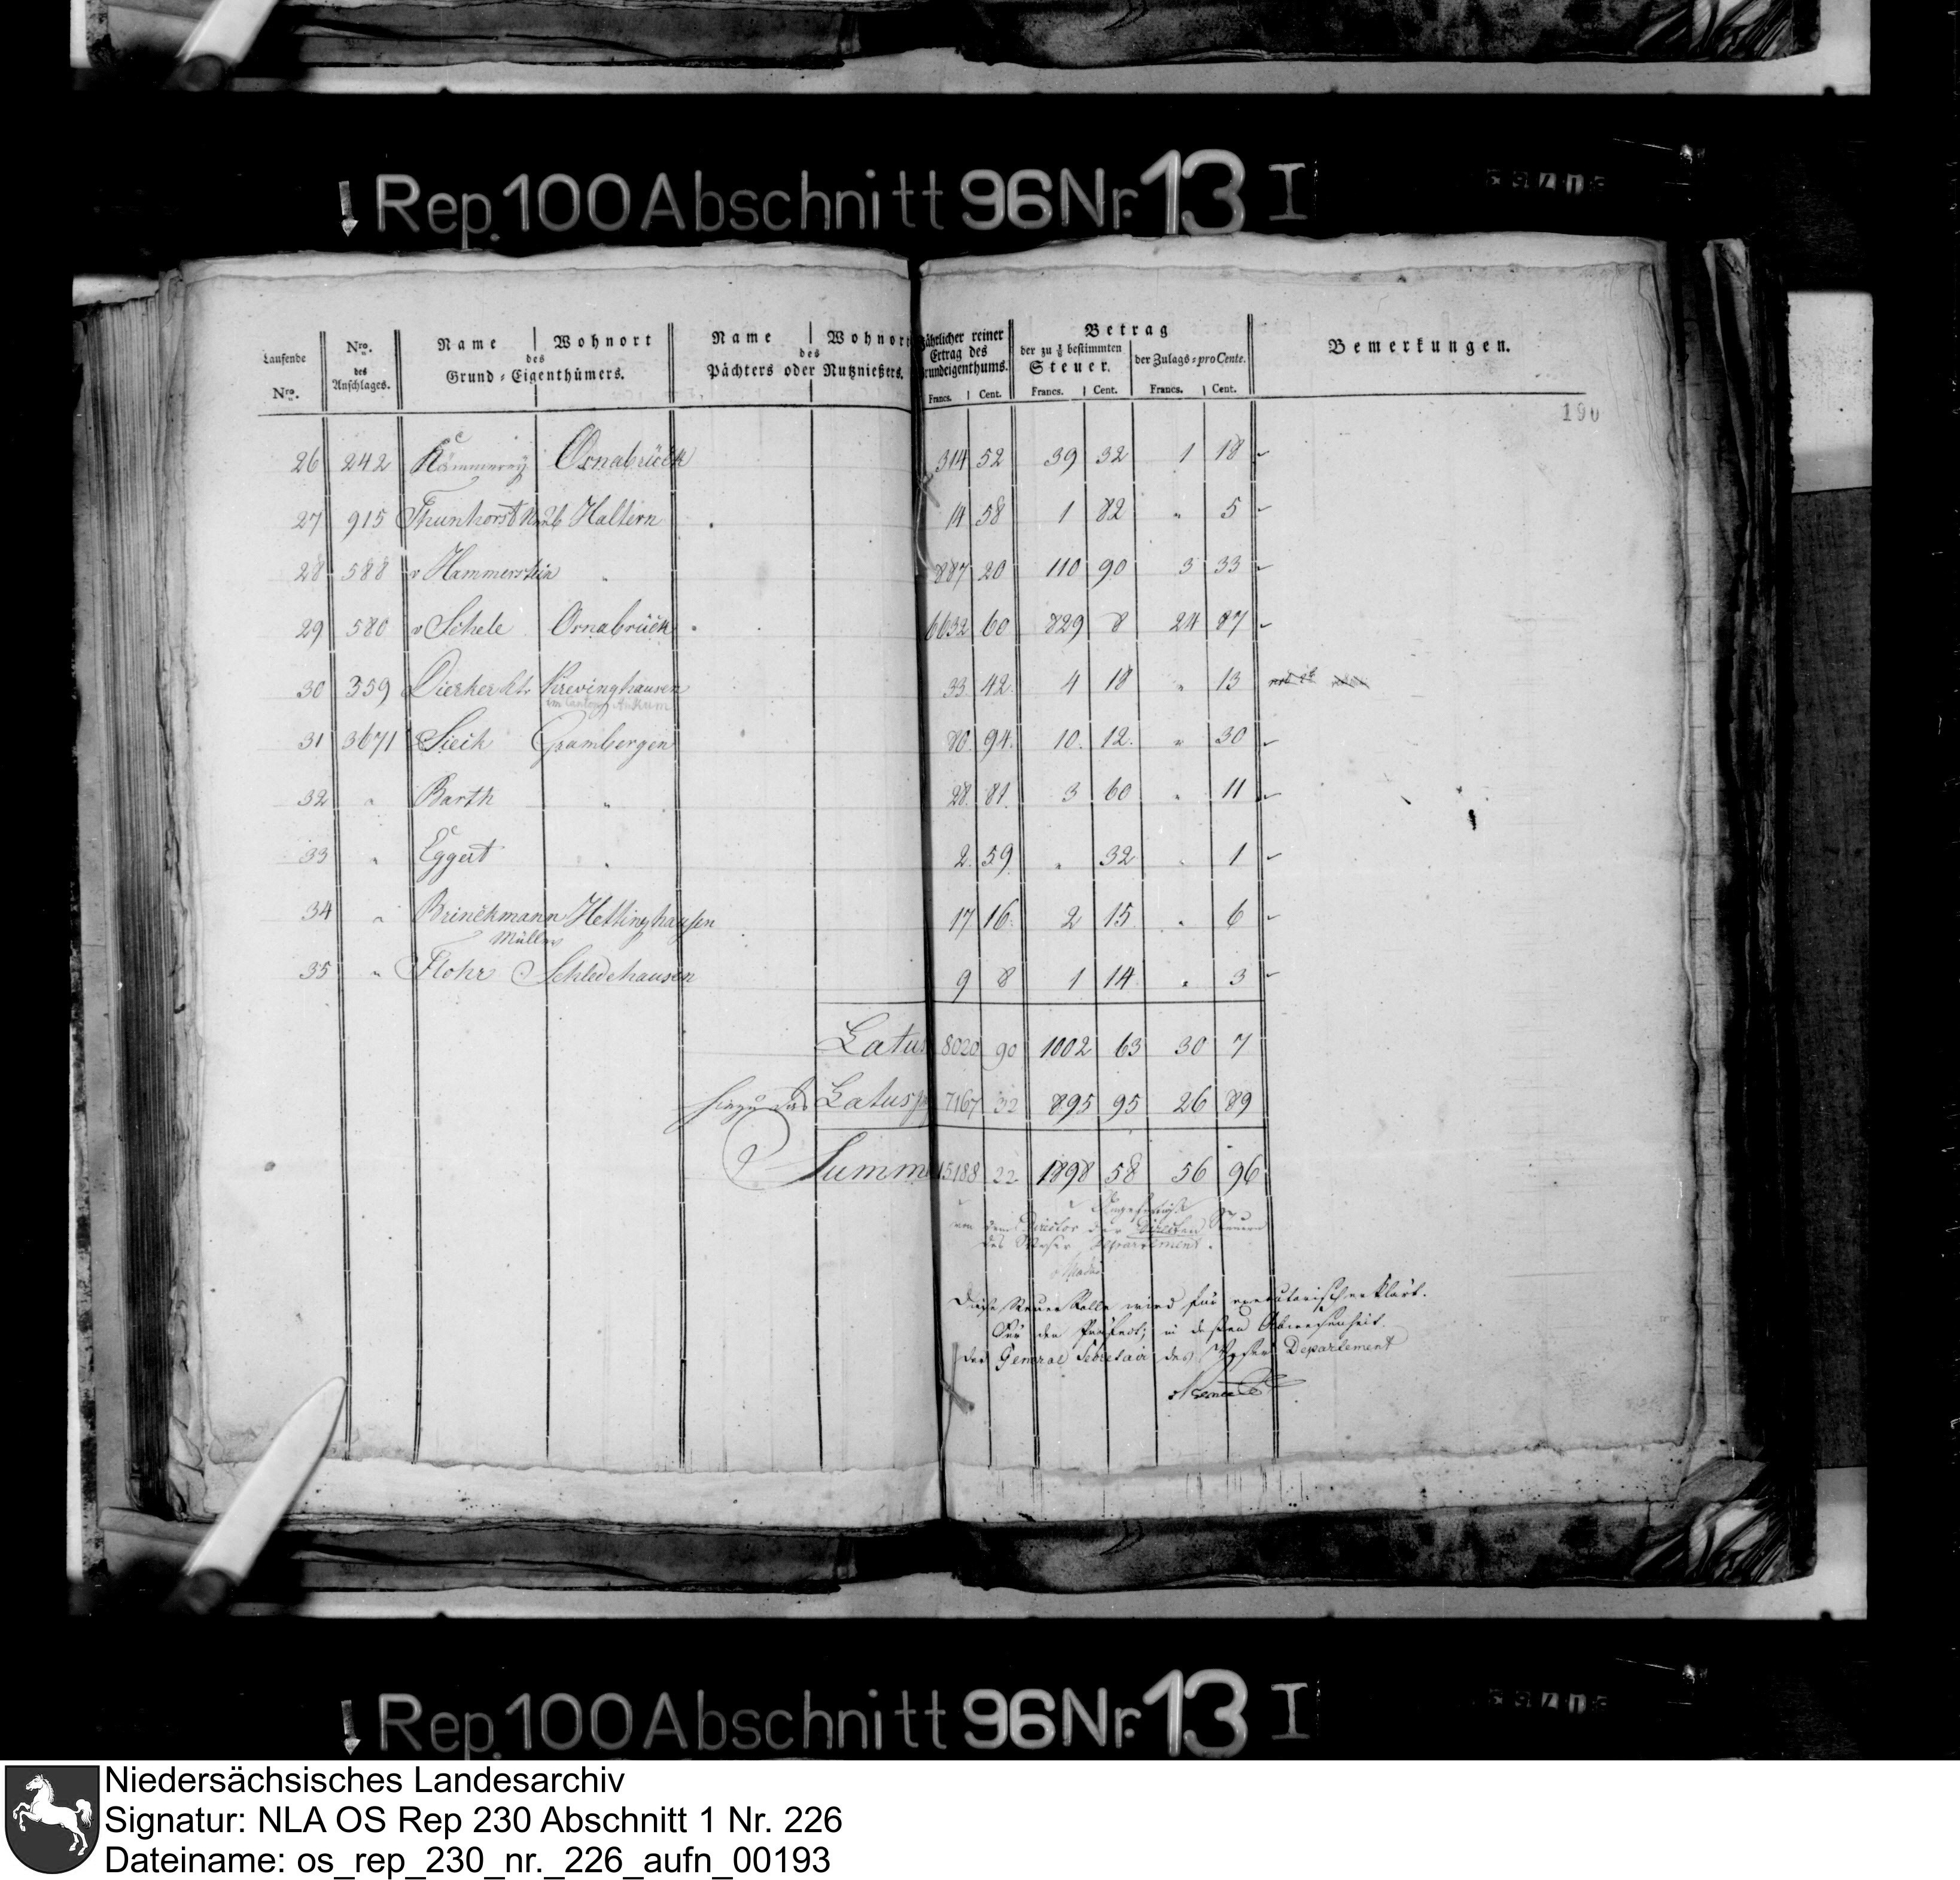 Rep. 100 Abschnitt 96 Nr. 13 I
Laufende Nro. | Nro. des Anschlages. | Name | Wohnort des Grund-Eigenthümers. | Name | Wohnort des Pächters oder Nutznießers. | Jährlicher reiner Ertrag des Grundeigenthums. Francs. | Cent. | Betrag der zu 1/8 bestimmten Steuer. Francs. | Cent. | der Zulags-pro Cente. Francs. | Cent. | Bemerkungen.
190
26 242 Kämmerey Osnabrück 314 52 39 32 1 18
27 915 Thunhorst No 26 Haltern 14 58 1 82 " 5
28 588 v Hammerstein " 887 20 110 90 3 33
29 580 v Schele Osnabrück 6632 60 829 8 24 87
30 359 Dierker Krevinghausen 33 42 4 18 " 13
im Canton Ankum
31 3671 Sieck Grambergen 80 94 10 12 " 30
32 " Barth " 28 81 3 60 " 11
33 " Eggert " 2 59 " 32 " 1
34 " Brinckmann Hettinghausen 17 16 2 15 " 6
Müller
35 " Flohr Schledehausen 9 8 1 14 " 3
Latus 8020 90 1002 63 30 7
hiezu das Latus 7167 32 895 95 26 89
Summa 15188 22 1898 58 56 96
von dem Director der Directen Steuern
des Weser Departement.
Diese Steuer Rolle wird für executorisch erklärt.
Für den Präfect, in dessen Abwesenheit.
der General Secretair des Weser Departement
Rep. 100 Abschnitt 96 Nr. 13 I
Niedersächsisches Landesarchiv
Signatur: NLA OS Rep 230 Abschnitt 1 Nr. 226
Dateiname: os_rep_230_nr._226_aufn_00193